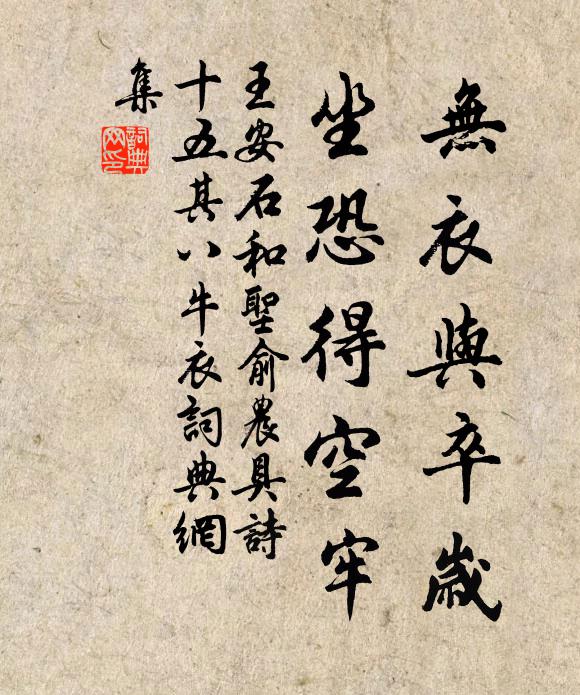 無衣與卒歲
坐恐得空牢
王安石和聖俞農具詩
十五其八牛衣詞典網
集
詞典
网印